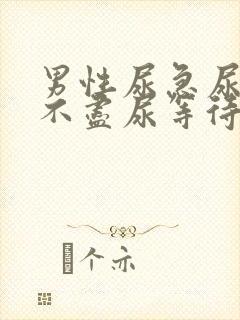 男性尿急尿
不盡尿等待
个亦